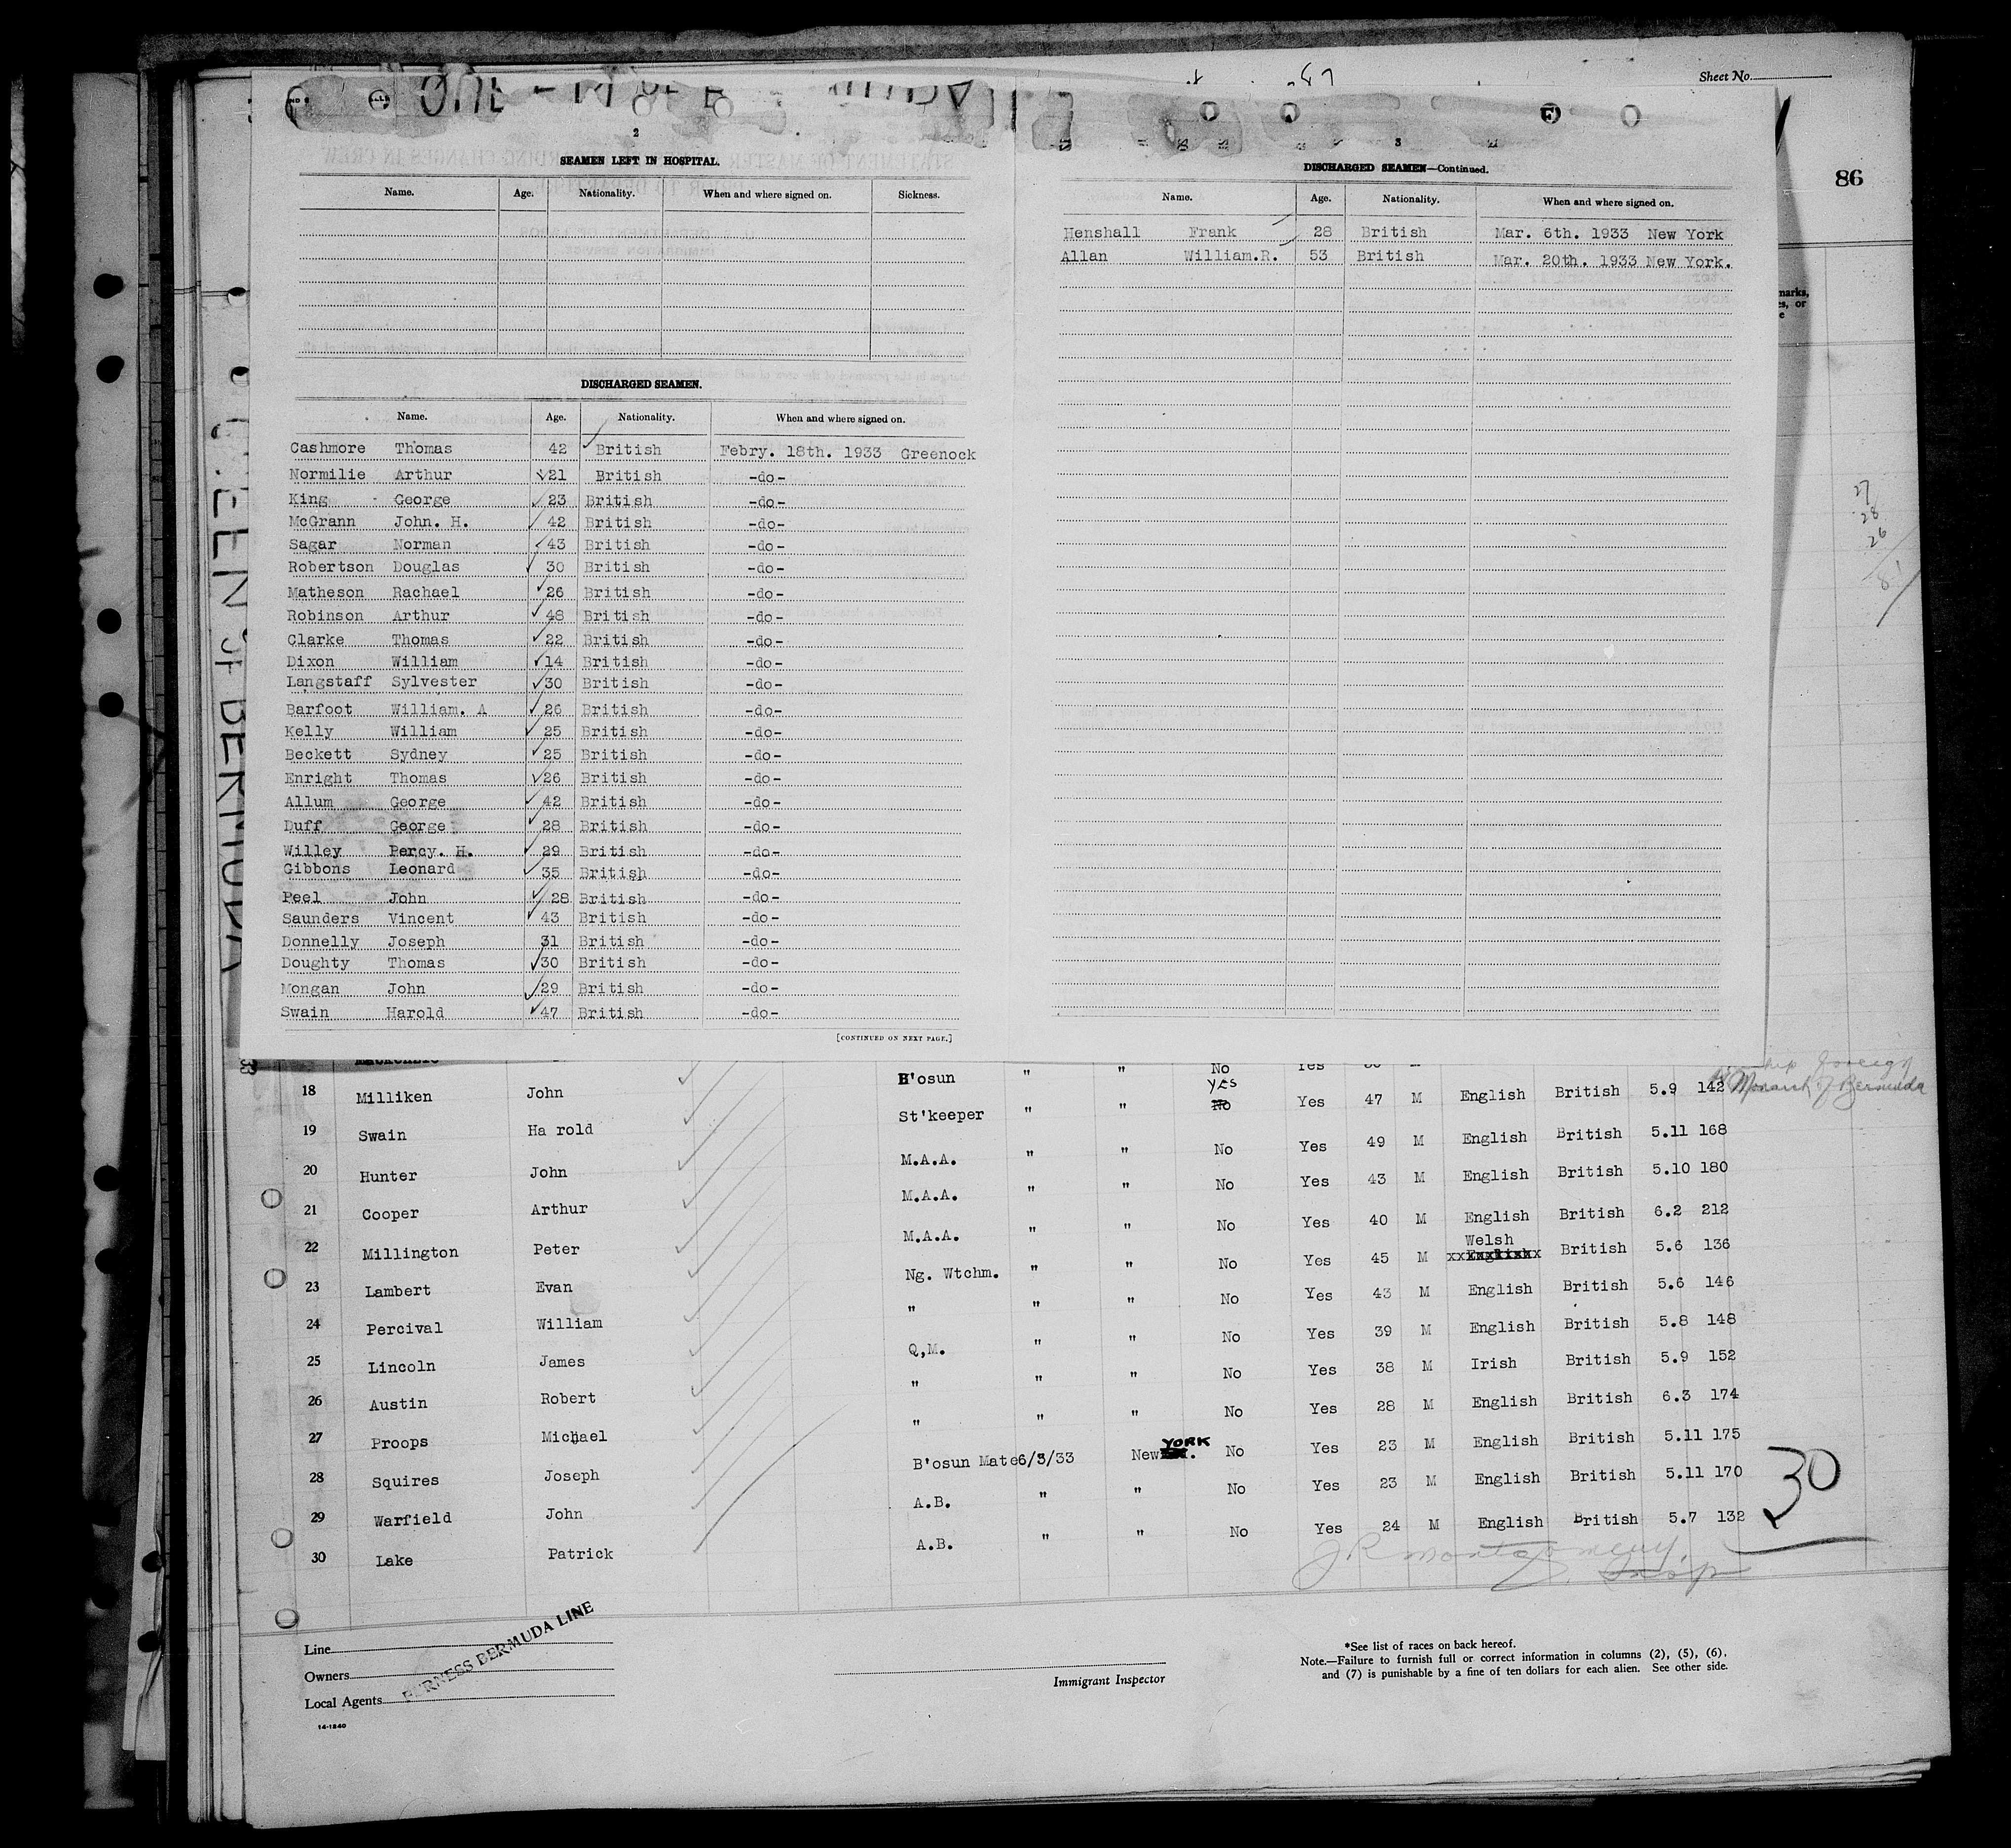 Sheet No.
86
2
SEAMEN LEFT IN HOSPITAL.
Name. Age. Nationality. When and where signed on. Sickness.
DISCHARGED SEAMEN.
Name. Age. Nationality. When and where signed on.
Cashmore Thomas 42 British Febry. 18th. 1933 Greenock
Normilie Arthur 21 British -do-
King George 23 British -do-
McGrann John. H. 42 British -do-
Sagar Norman 43 British -do-
Robertson Douglas 30 British -do-
Matheson Rachael 26 British -do-
Robinson Arthur 48 British -do-
Clarke Thomas 22 British -do-
Dixon William 14 British -do-
Langstaff Sylvester 30 British -do-
Barfoot William. A 26 British -do-
Kelly William 25 British -do-
Beckett Sydney 25 British -do-
Enright Thomas 26 British -do-
Allum George 42 British -do-
Duff George 28 British -do-
Willey Percy. H. 29 British -do-
Gibbons Leonard 35 British -do-
Peel John 28 British -do-
Saunders Vincent 43 British -do-
Donnelly Joseph 31 British -do-
Doughty Thomas 30 British -do-
Mongan John 29 British -do-
Swain Harold 47 British -do-
[CONTINUED ON NEXT PAGE.]
3
DISCHARGED SEAMEN—Continued.
Name. Age. Nationality. When and where signed on.
Henshall Frank 28 British Mar. 6th. 1933 New York
Allan William.R. 53 British Mar. 20th. 1933 New York.
marks,
es, or
e
27
28
26
81
OF BERMUDA
18 Milliken John B'osun " " No YES Yes 47 M English British 5.9 142 Monarch of Bermuda
19 Swain Ha rold St'keeper " " No Yes 49 M English British 5.11 168
20 Hunter John M.A.A. " " No Yes 43 M English British 5.10 180
21 Cooper Arthur M.A.A. " " No Yes 40 M English British 6.2 212
22 Millington Peter M.A.A. " " No Yes 45 M Welsh xxEnglishxx British 5.6 136
23 Lambert Evan Ng. Wtchm. " " No Yes 43 M English British 5.6 146
24 Percival William " " " No Yes 39 M English British 5.8 148
25 Lincoln James Q,M. " " No Yes 38 M Irish British 5.9 152
26 Austin Robert " " " No Yes 28 M English British 6.3 174
27 Proops Michael " " " No Yes 23 M English British 5.11 175
28 Squires Joseph B'osun Mate 6/3/33 New YORK. No Yes 23 M English British 5.11 170
29 Warfield John A.B. " " No Yes 24 M English British 5.7 132
30 Lake Patrick A.B. " "
30
J R Montgomery.
Insp
Line
Owners
Local Agents
FURNESS BERMUDA LINE
14-1240
Immigrant Inspector
*See list of races on back hereof.
Note.—Failure to furnish full or correct information in columns (2), (5), (6),
and (7) is punishable by a fine of ten dollars for each alien. See other side.